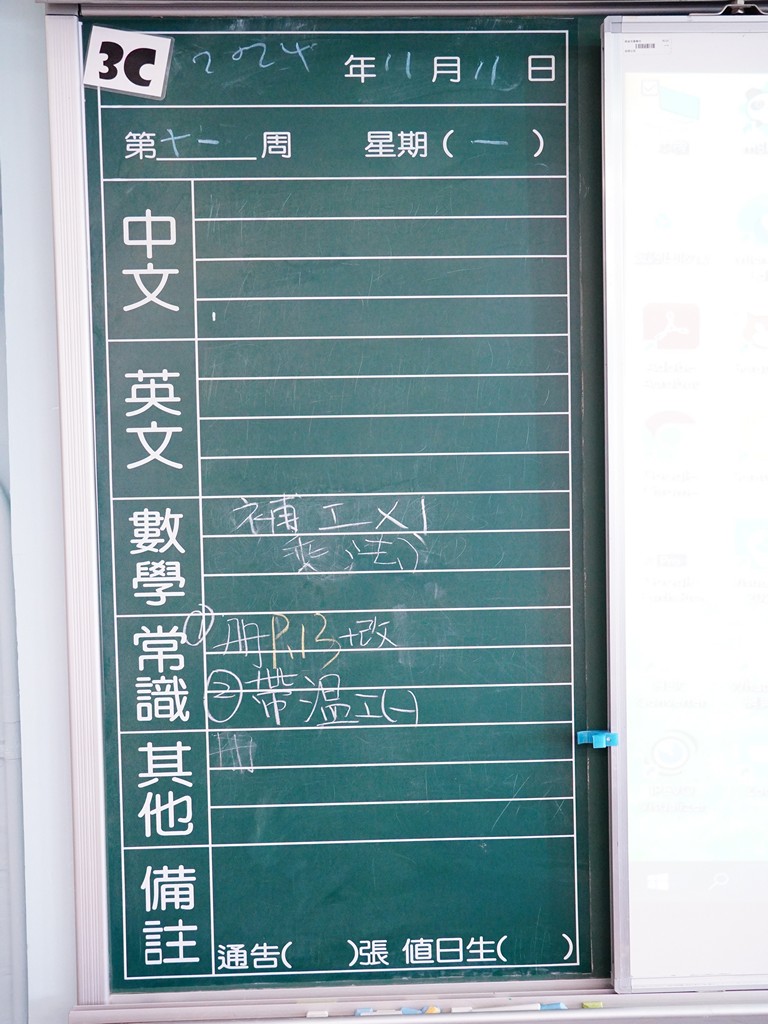 3C
2024年11月11日
第十一周 星期(一)
中文
英文
數學 補工X1
乘法)
常識 ①册P.13+改
②帶溫工(一)
其他
備註
通告( )張 值日生( )